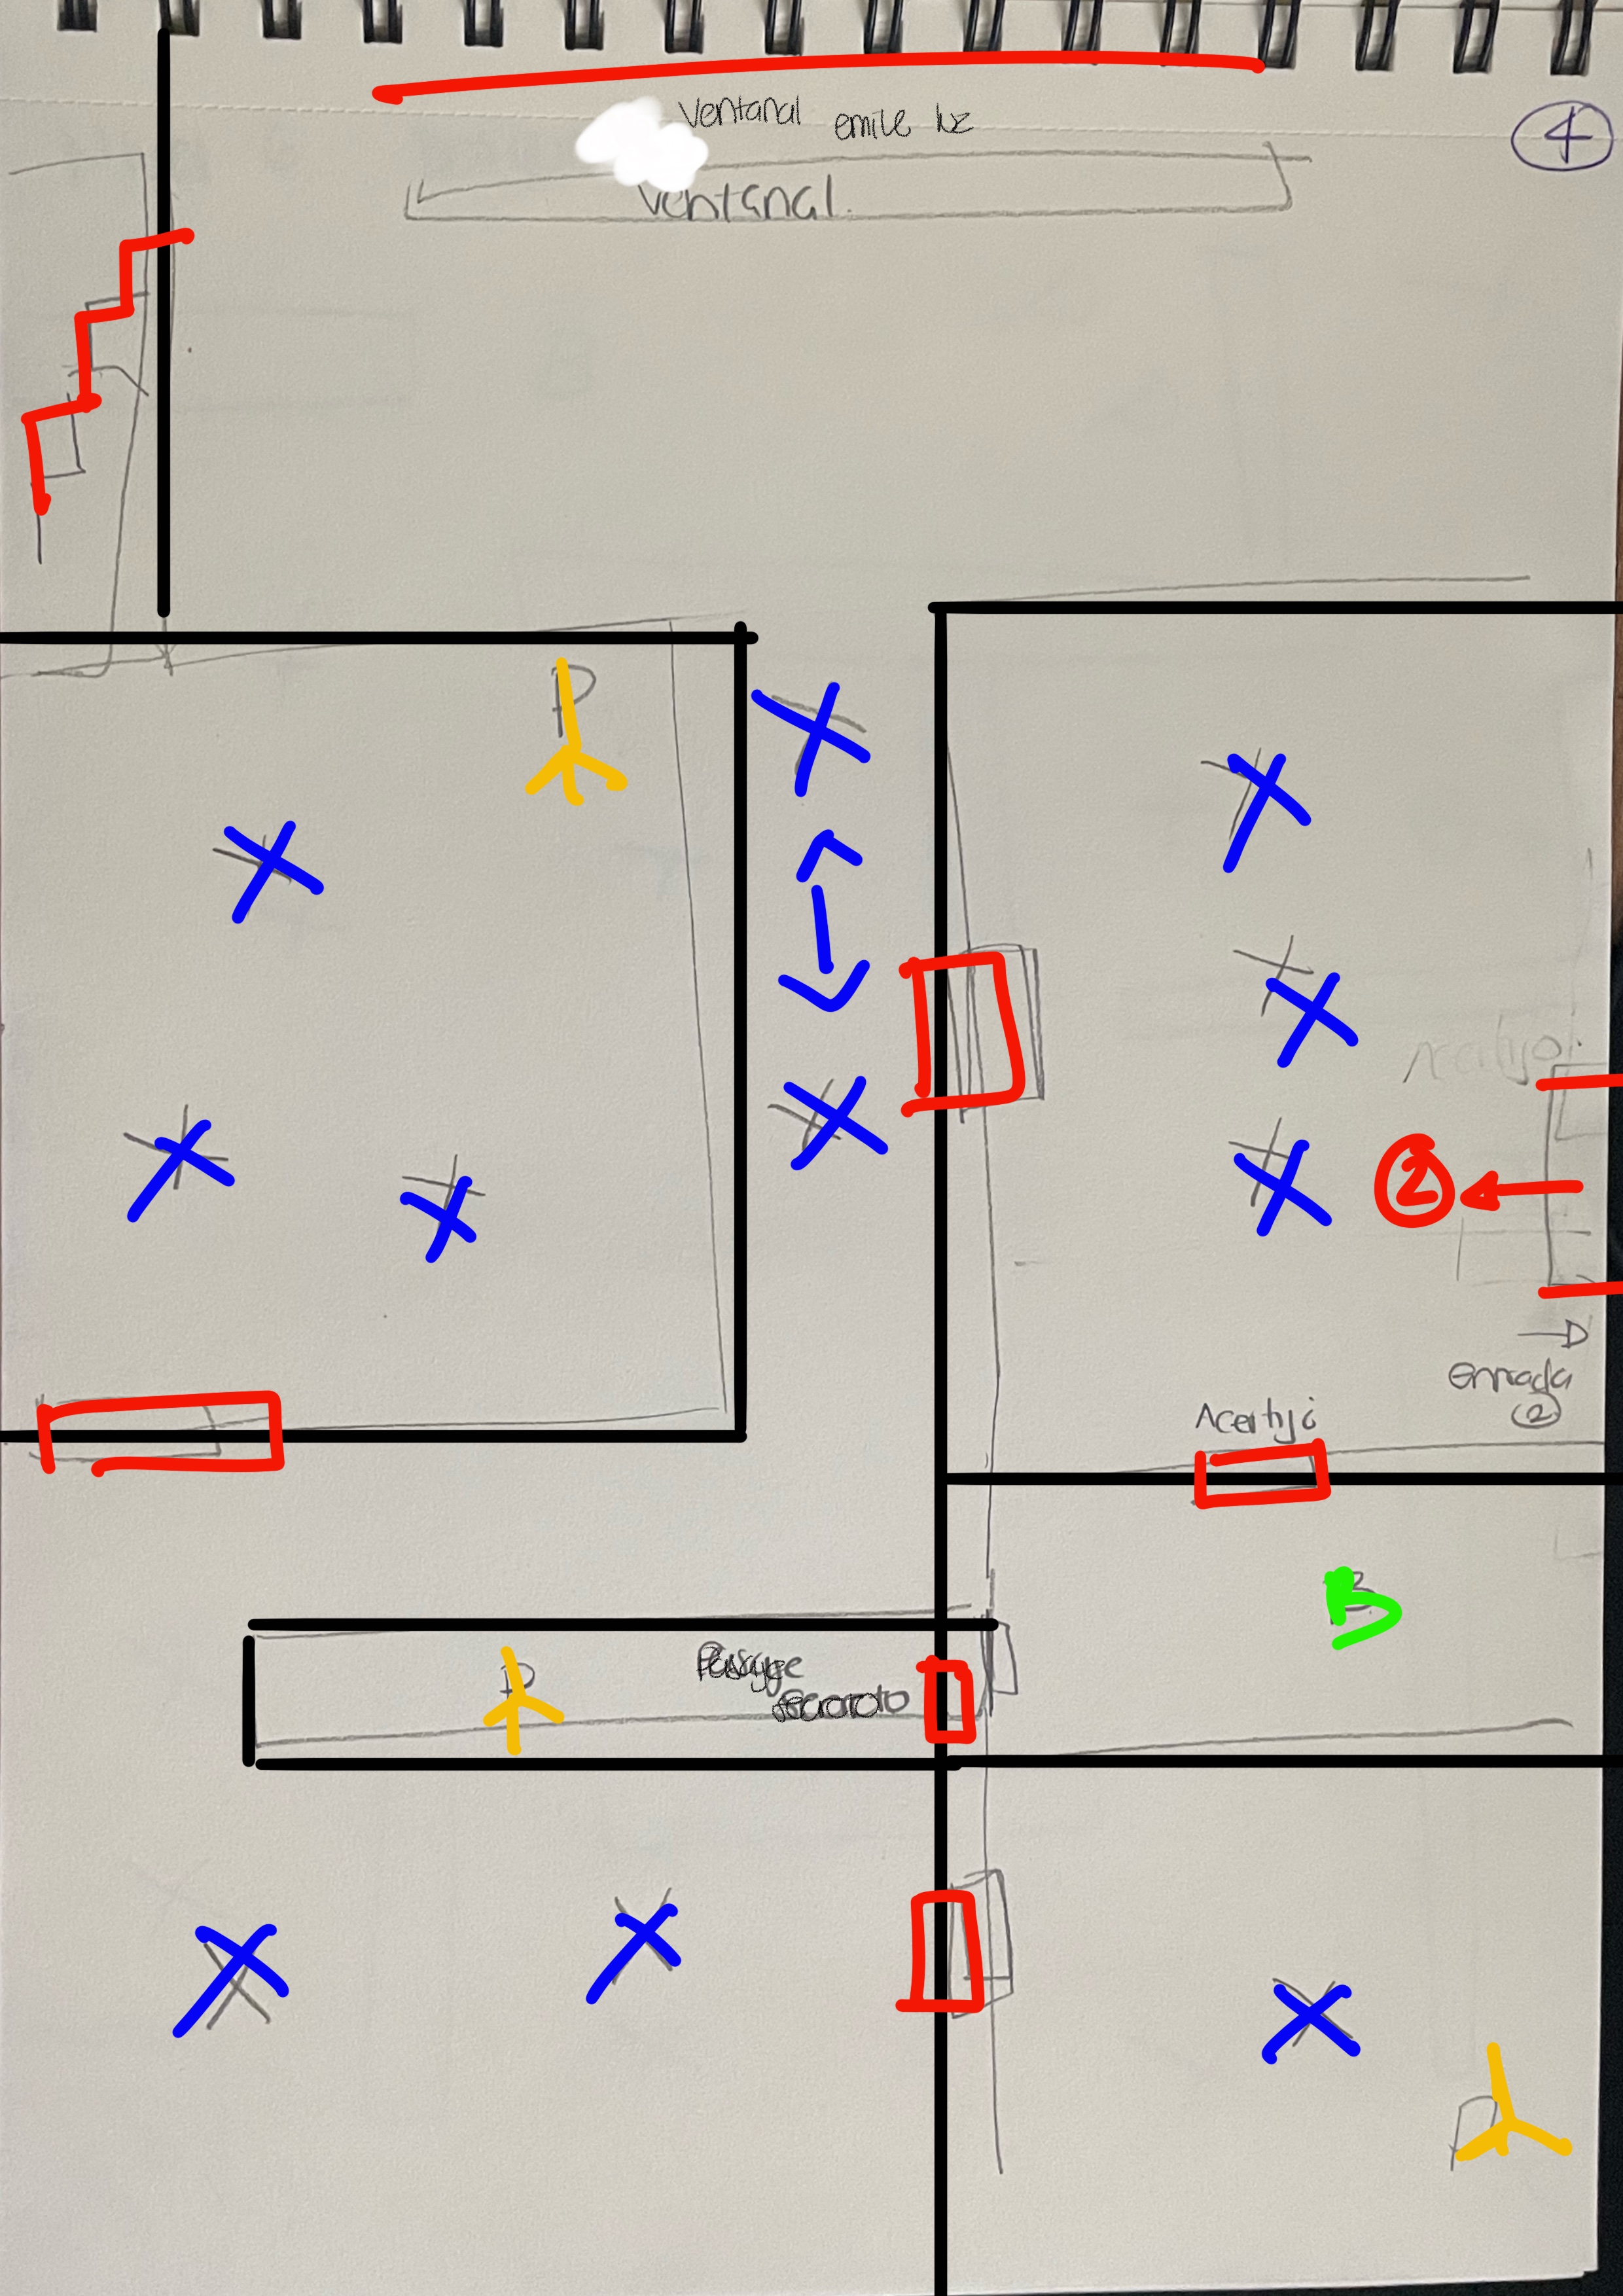 Ventanal emite luz
4
Ventanal.
P
Acertijo
2
Entrada
(2)
Acertijo
B
Pasaje
secreto
P
P